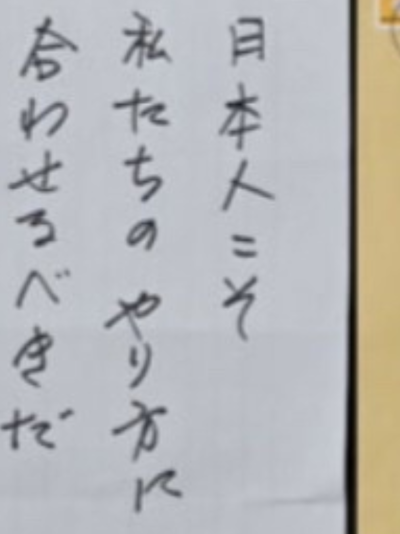 日本人こそ
私たちのやり方に
合わせるべきだ